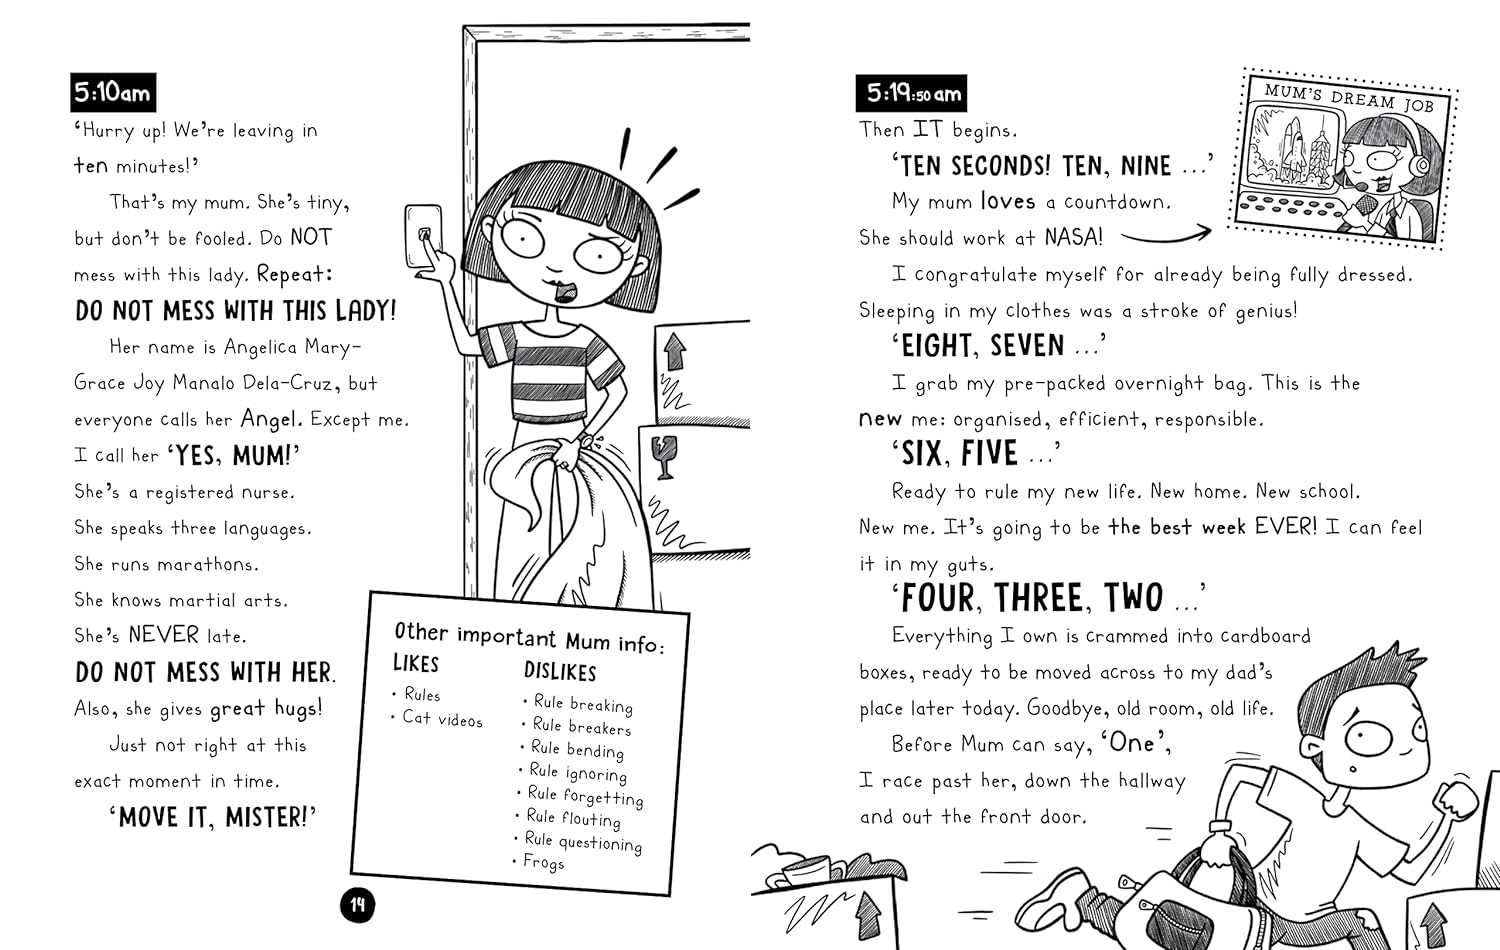 5:10am
‘Hurry up! We’re leaving in
ten minutes!’
That’s my mum. She’s tiny,
but don’t be fooled. Do NOT
mess with this lady. Repeat:
DO NOT MESS WITH THIS LADY!
Her name is Angelica Mary-
Grace Joy Manalo Dela-Cruz, but
everyone calls her Angel. Except me.
I call her ‘YES, MUM!’
She’s a registered nurse.
She speaks three languages.
She runs marathons.
She knows martial arts.
She’s NEVER late.
DO NOT MESS WITH HER.
Also, she gives great hugs!
Just not right at this
exact moment in time.
‘MOVE IT, MISTER!’
Other important Mum info:
LIKES
• Rules
• Cat videos
DISLIKES
• Rule breaking
• Rule breakers
• Rule bending
• Rule ignoring
• Rule forgetting
• Rule flouting
• Rule questioning
• Frogs
14
5:19:50 am
Then IT begins.
‘TEN SECONDS! TEN, NINE ...’
My mum loves a countdown.
She should work at NASA!
MUM’S DREAM JOB
I congratulate myself for already being fully dressed.
Sleeping in my clothes was a stroke of genius!
‘EIGHT, SEVEN ...’
I grab my pre-packed overnight bag. This is the
new me: organised, efficient, responsible.
‘SIX, FIVE ...’
Ready to rule my new life. New home. New school.
New me. It’s going to be the best week EVER! I can feel
it in my guts.
‘FOUR, THREE, TWO ...’
Everything I own is crammed into cardboard
boxes, ready to be moved across to my dad’s
place later today. Goodbye, old room, old life.
Before Mum can say, ‘One’,
I race past her, down the hallway
and out the front door.